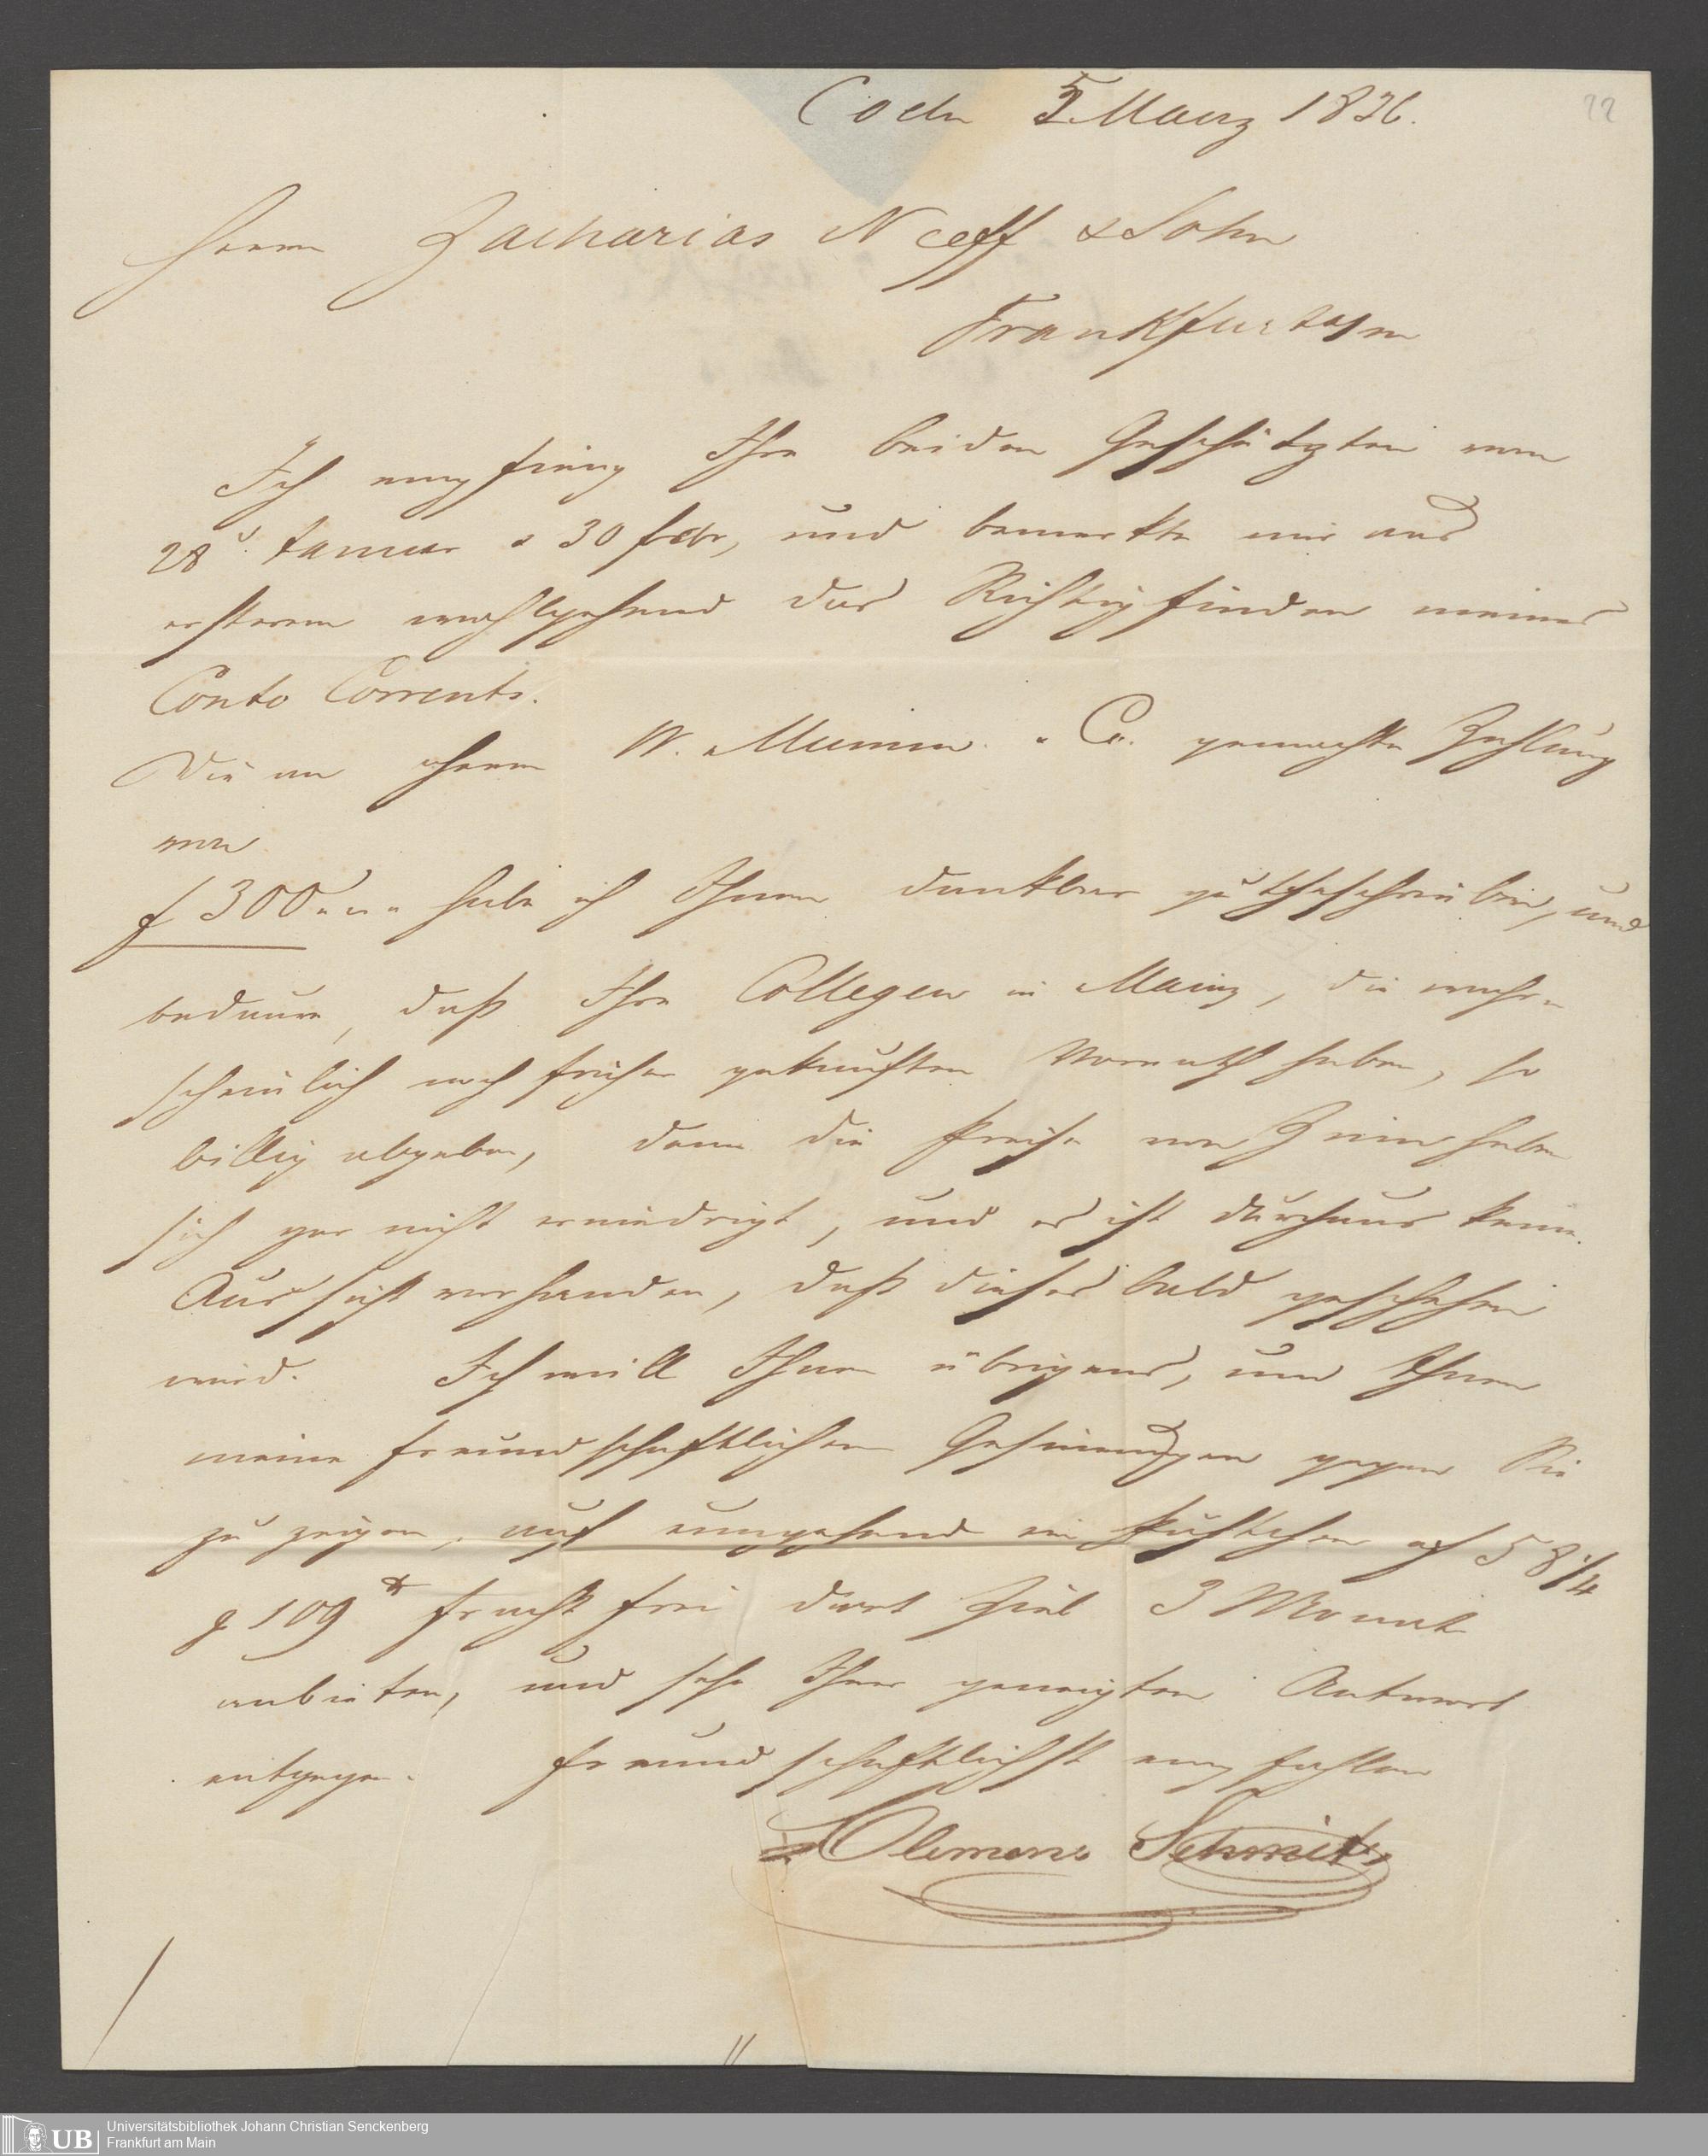 22
Coeln 5 Maerz 1836.
Herrn Zacharias Neeff & Sohn
Frankfurt a/m
Ich empfieng Ihre beiden Geschätzten vom
28 d. Januar & 30 febr, und bemerkte mir aus
ersterem das Richtigfinden meines
Conto Corrents.
Die an Herrn W. Mumm & Co. gemachte Zahlung
von
f 300 „ „ habe ich Ihnen dankbar gutgeschrieben, und
bedaure, daß Ihre Collegen in Mainz, die wahr-
scheinlich noch früher gekauften Vorrath haben, so
billig abgeben, denn die Preise von Zinn haben
sich gar nicht erniedrigt, und es ist durchaus keine
Aussicht vorhanden, daß dieses bald geschehen
wird. Ich will Ihnen übrigens, um Ihnen
meine freundschaftlichen Gesinnungen gegen Sie
zu zeigen, auf umgehend ein 58 1/4
109 fracht frei dort Ziel 3 Monate
anbieten, und sehe Ihrer geneigten Antwort
entgegen. Freundschaftlichst empfohlen
Clemens Schmitz
UB Universitätsbibliothek Johann Christian Senckenberg
Frankfurt am Main